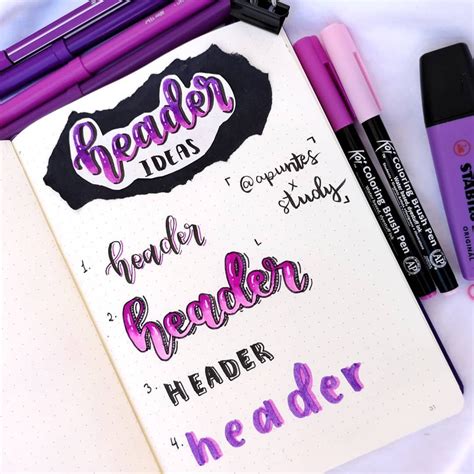 header
IDEAS
「@apuntes
x
study」
1. header
2. header
3. HEADER
4. header
Koi Coloring Brush Pen
Koi Coloring Brush Pen
AP
AP
ORIGINAL